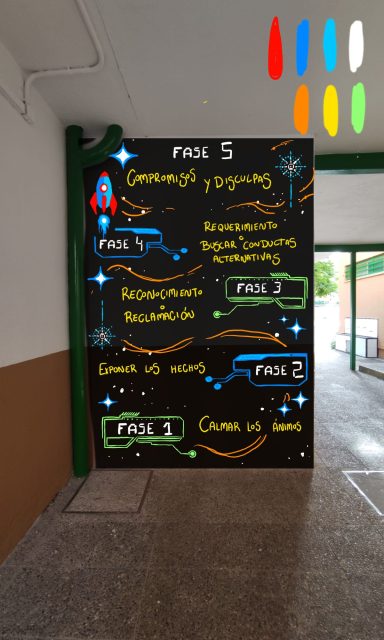 FASE 5
COMPROMISOS Y DISCULPAS
REQUERIMIENTO
BUSCAR CONDUCTAS
ALTERNATIVAS
FASE 4
RECONOCIMIENTO
O
RECLAMACIÓN
FASE 3
EXPONER LOS HECHOS
FASE 2
FASE 1
CALMAR LOS ÁNIMOS